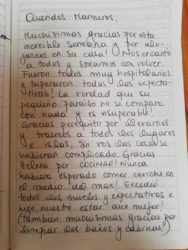 Queridos Marineros,
Muchísimas gracias por esta
increíble semana y por alo-
jarnos en su casa! Nos encantó
a todos y soñamos con volver.
Fueron todos muy hospitalarios
y superaron todas las expecta-
tivas. La verdad que su
pequeño paraíso no se compara
con nada y es insuperable!
Gracias Perquito por llevarnos
y traernos a todos los lugares
e islas, sin vos las cosas
hubieran complicado. Gracias
por COCINAR! Nunca
hubiera esperado comer ceviche en
el medio del mar! Excedió
todos los niveles y expectativas e
hizo nuestro estar aún mejor!
(También muchísimas gracias por
limpiar los baños y cabinas)